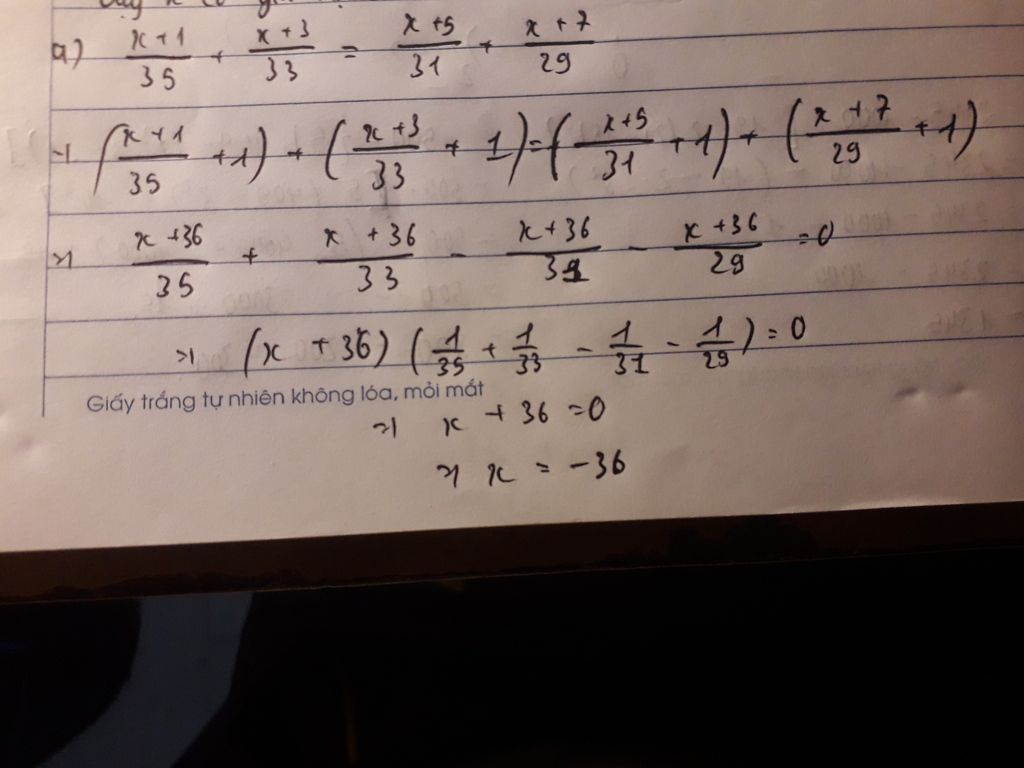 a) \frac{x+1}{35} + \frac{x+3}{33} = \frac{x+5}{31} + \frac{x+7}{29}
⇒ (\frac{x+1}{35} + 1) + (\frac{x+3}{33} + 1) = (\frac{x+5}{31} + 1) + (\frac{x+7}{29} + 1)
⇒ \frac{x+36}{35} + \frac{x+36}{33} - \frac{x+36}{31} - \frac{x+36}{29} = 0
⇒ (x + 36) (\frac{1}{35} + \frac{1}{33} - \frac{1}{31} - \frac{1}{29}) = 0
Giấy trắng tự nhiên không lóa, mỏi mắt
⇒ x + 36 = 0
⇒ x = -36